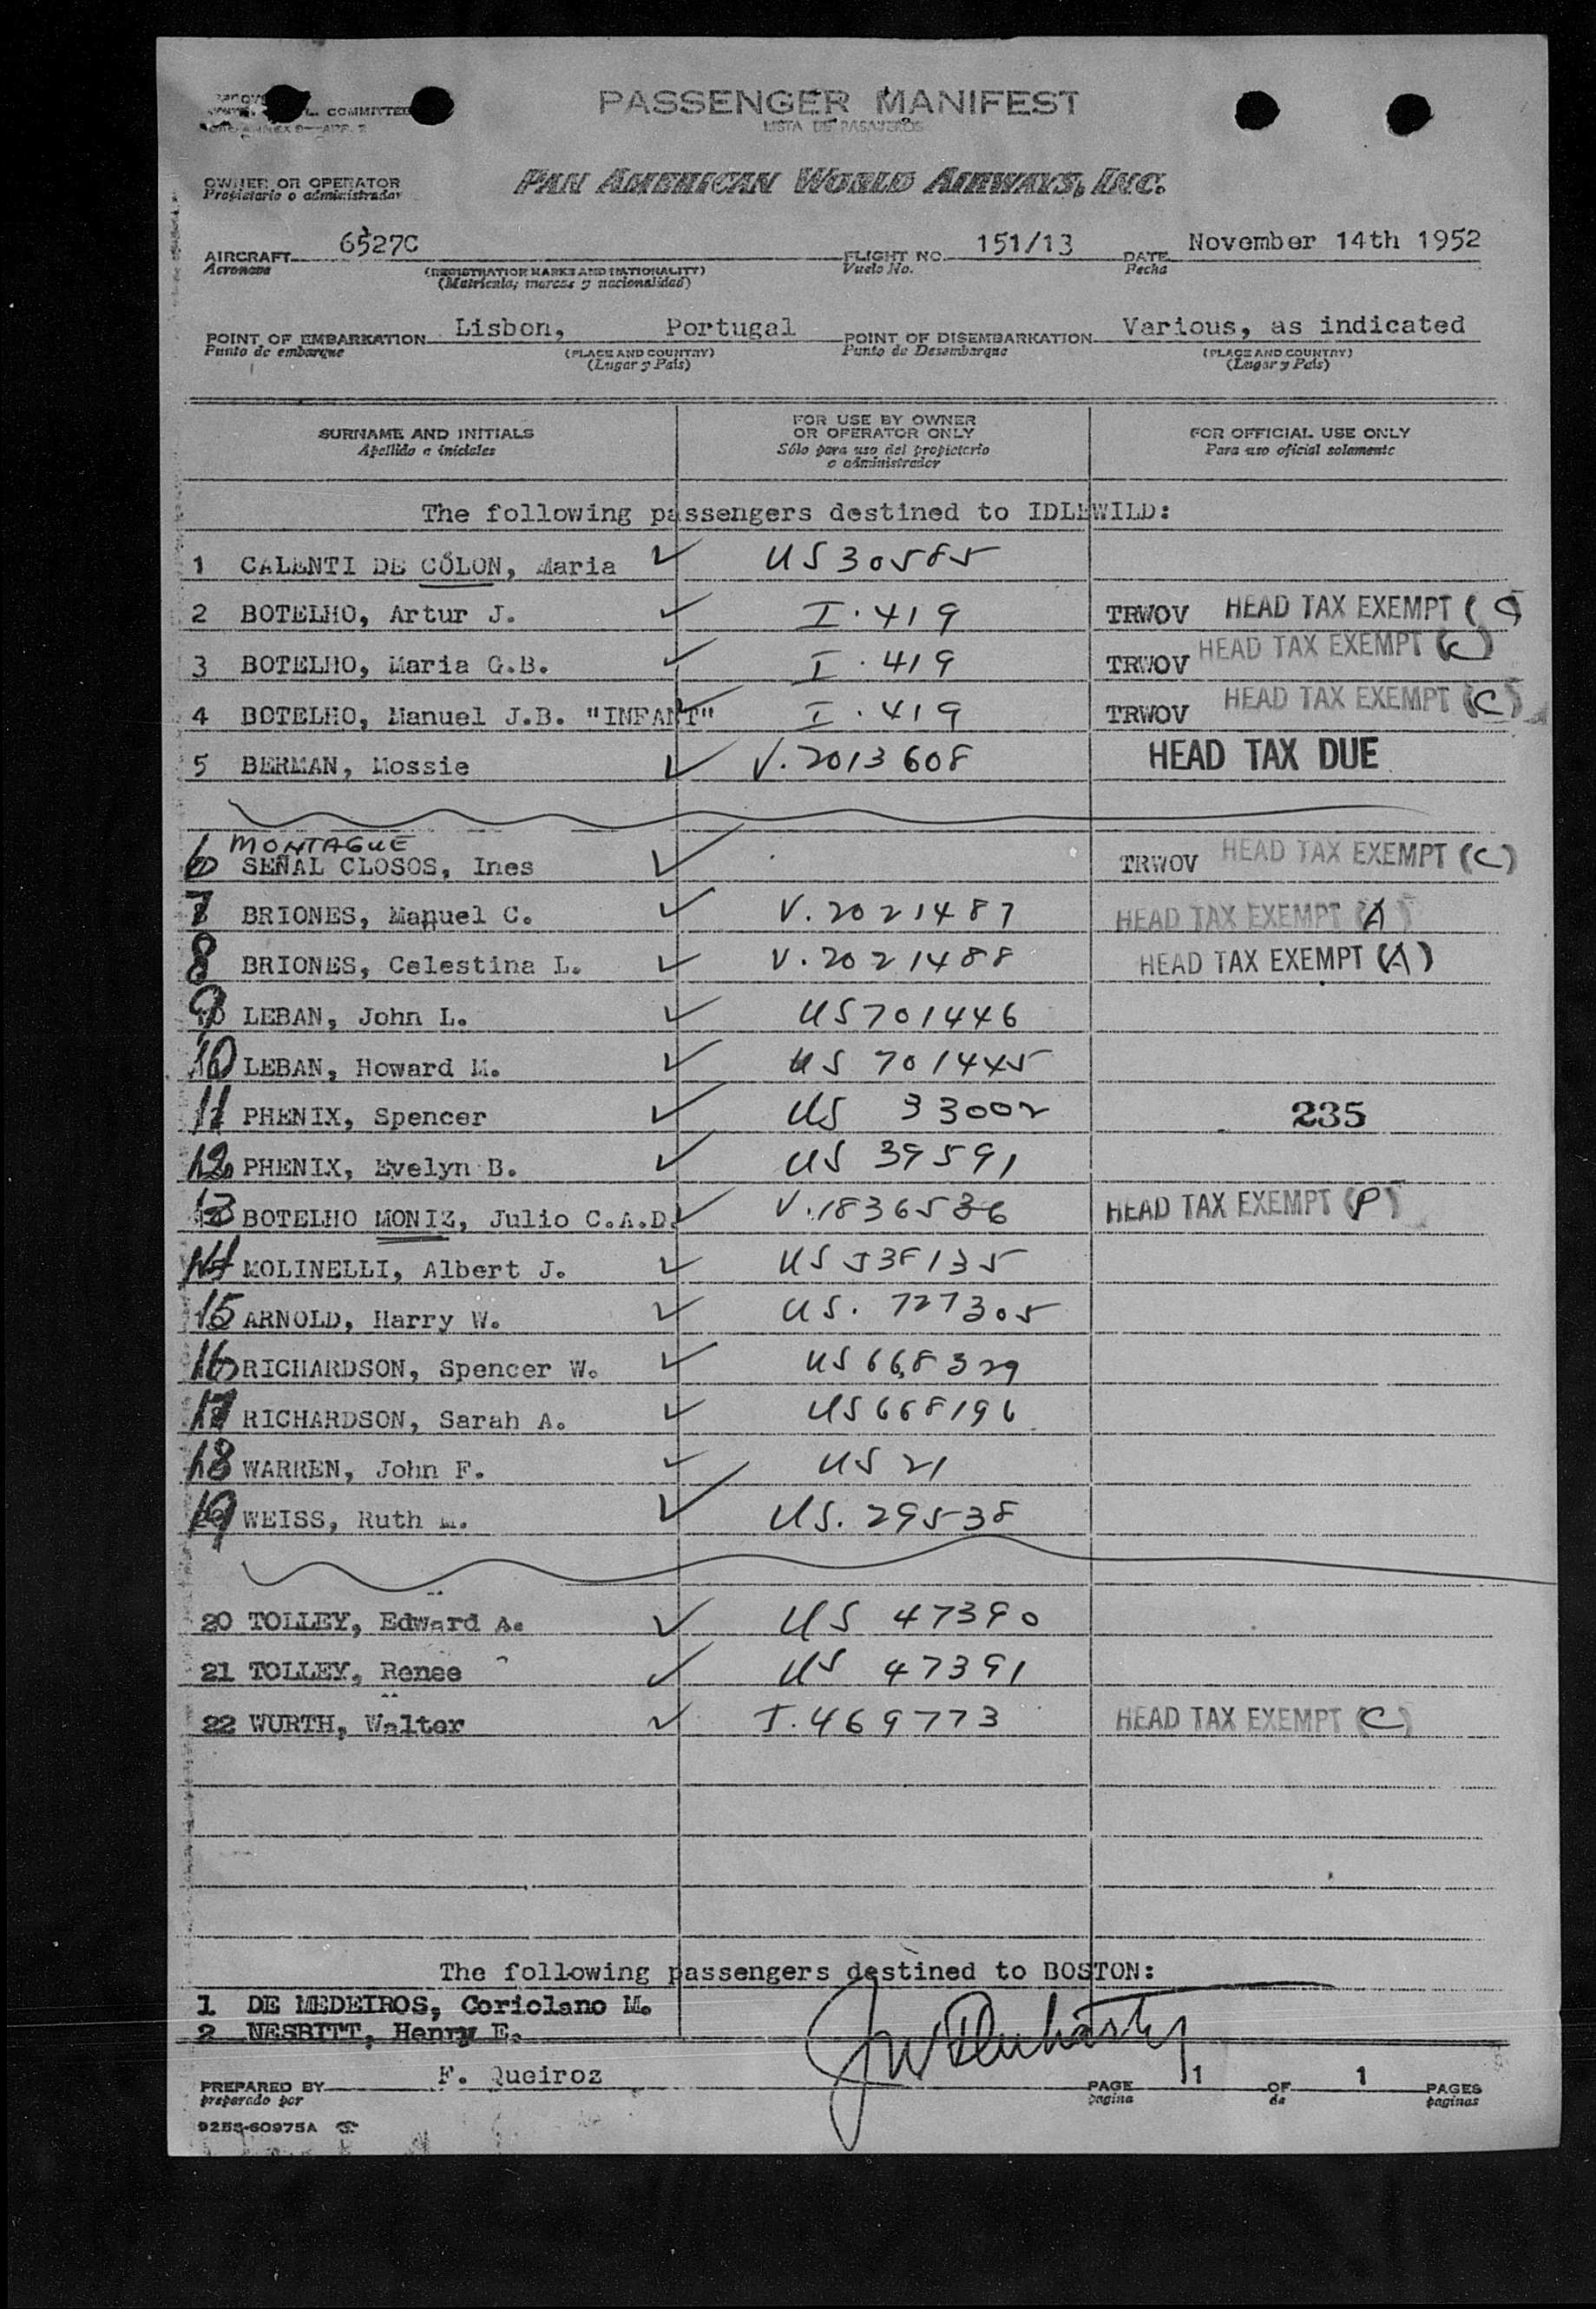 COMMITTEE
PASSENGER MANIFEST
LISTA DE PASAJEROS
OWNER OR OPERATOR
Propietario o administrador
PAN AMERICAN WORLD AIRWAYS, INC.
AIRCRAFT 6527C FLIGHT NO. 151/13 DATE November 14th 1952
Aeronave (REGISTRATION MARKS AND NATIONALITY) Vuelo No. Fecha
(Matrícula, marcas y nacionalidad)
POINT OF EMBARKATION Lisbon, Portugal POINT OF DISEMBARKATION Various, as indicated
Punto de embarque (PLACE AND COUNTRY) Punto de Desembarque (PLACE AND COUNTRY)
(Lugar y País) (Lugar y País)
SURNAME AND INITIALS FOR USE BY OWNER OR OPERATOR ONLY FOR OFFICIAL USE ONLY
Apellido e iniciales Sólo para uso del propietario o administrador Para uso oficial solamente
The following passengers destined to IDLEWILD:
1 CALENTI DE COLON, Maria ✓ US 30585
2 BOTELHO, Artur J. ✓ I. 419 TRWOV HEAD TAX EXEMPT (C)
3 BOTELHO, Maria G.B. ✓ I. 419 TRWOV HEAD TAX EXEMPT (C)
4 BOTELHO, Manuel J.B. "INFANT" ✓ I. 419 TRWOV HEAD TAX EXEMPT (C)
5 BERMAN, Mossie ✓ V. 2013608 HEAD TAX DUE
MONTAGUE
6 SEÑAL CLOSOS, Ines ✓ TRWOV HEAD TAX EXEMPT (C)
7 BRIONES, Manuel C. ✓ V. 2021487 HEAD TAX EXEMPT (A)
8 BRIONES, Celestina L. ✓ V. 2021488 HEAD TAX EXEMPT (A)
9 LEBAN, John L. ✓ US 701446
10 LEBAN, Howard M. ✓ US 701445
11 PHENIX, Spencer ✓ US 33002 235
12 PHENIX, Evelyn B. ✓ US 39591
13 BOTELHO MONIZ, Julio C.A.D. ✓ V. 1836536 HEAD TAX EXEMPT (P)
14 MOLINELLI, Albert J. ✓ US 538135
15 ARNOLD, Harry W. ✓ US. 727305
16 RICHARDSON, Spencer W. ✓ US 668329
17 RICHARDSON, Sarah A. ✓ US 668196
18 WARREN, John F. ✓ US 21
19 WEISS, Ruth M. ✓ US. 29538
20 TOLLEY, Edward A. ✓ US 47390
21 TOLLEY, Renee ✓ US 47391
22 WURTH, Walter ✓ I. 469773 HEAD TAX EXEMPT (C)
The following passengers destined to BOSTON:
1 DE MEDEIROS, Coriolano M.
2 NESBITT, Henry E.
PREPARED BY F. Queiroz PAGE 1 OF 1 PAGES
preparado por pagina de paginas
9253-60975A